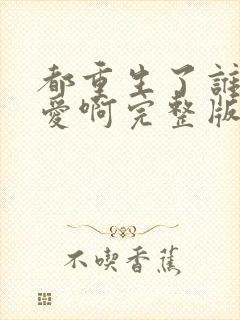 都重生了誰
愛啊完整版
不喫香蕉